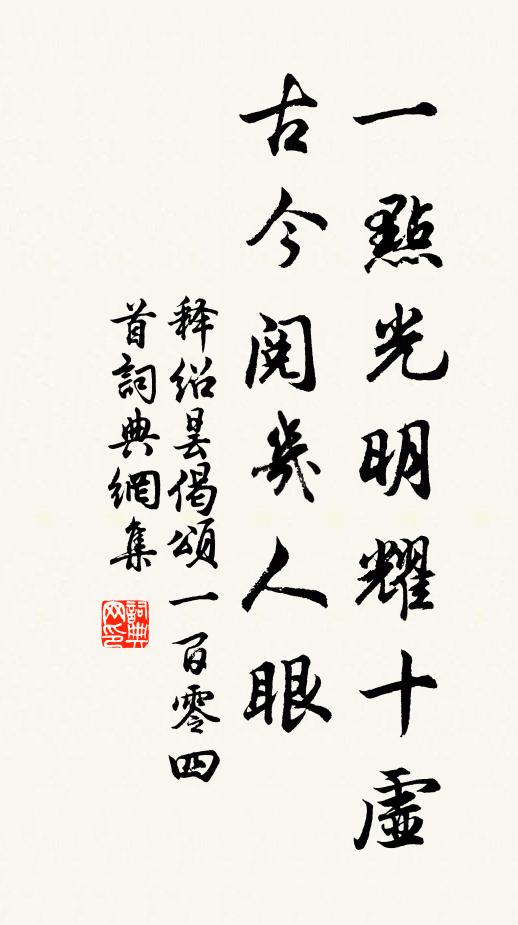 一點光明耀十虛
古今閱幾人眼
释紹昙偈頌一百零四
首詞典網集
詞典网印